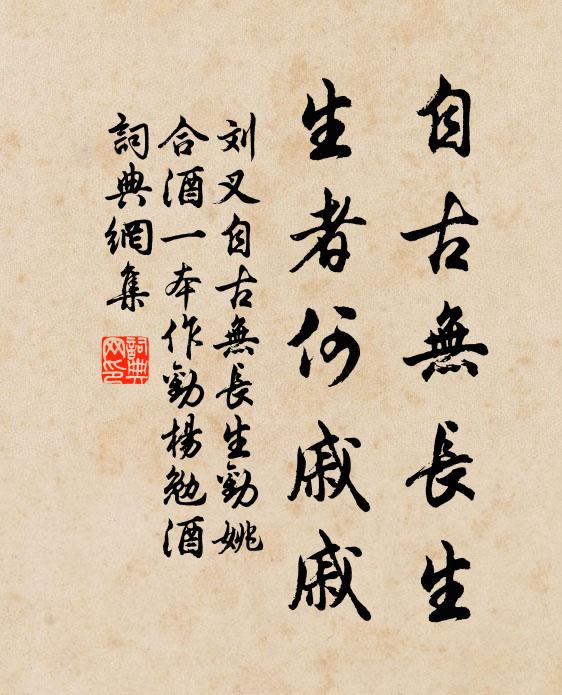 自古無長生
生者何戚戚
刘叉自古無長生勸姚
合酒一本作勸楊勉酒
詞典網集
詞典網印